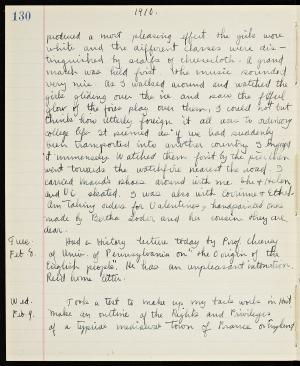 130
1910.
produced a most pleasing effect the girls wore
white and the different classes were dis-
tinguished by scarfs of cheesecloth. A grand
march was held first. The music sounded
very nice as I walked around and watched the
girls gliding over the ice and saw the fitful
glow of the fires play over them, I could not but
think how utterly foreign it all was to ordinary
college life. It seemed as if we had suddenly
been transported into another country. I enjoyed
it immensely. Watched them first by the
went towards the watchfire nearest the road. I
carried Maud's shoes around with me. She & Helen
and skated. I was also with Corinne & Ethel.
Am taking orders for Valentines, handpainted ones
made by Bertha and her cousin they are
dear.
Tues.
Feb 8.
Had a History lecture today by Prof. Cheney
of Univ. of Pennsylvania on "the Origin of the
English people". He has an unpleasant intonation.
Rec'd home letter.
Wed.
Feb. 9.
Took a test to make up my back work in Hist
make an outline of the Rights and Privileges
of a typical mediaeval town of France or England